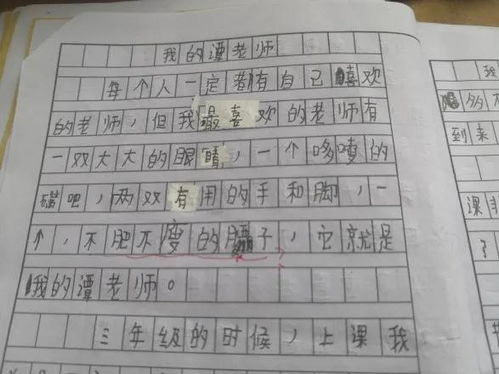 我的潭老师
每个人一定都有自己嘻欢
的老师，但我最喜欢的老师有
一双大大的眼睛，一个哆喽的
嘴吧，两双有用的手和脚，一
个，不肥不瘦的子，它就是
我的潭老师。
三年级的时候，上课我
我
多
到来
课
？